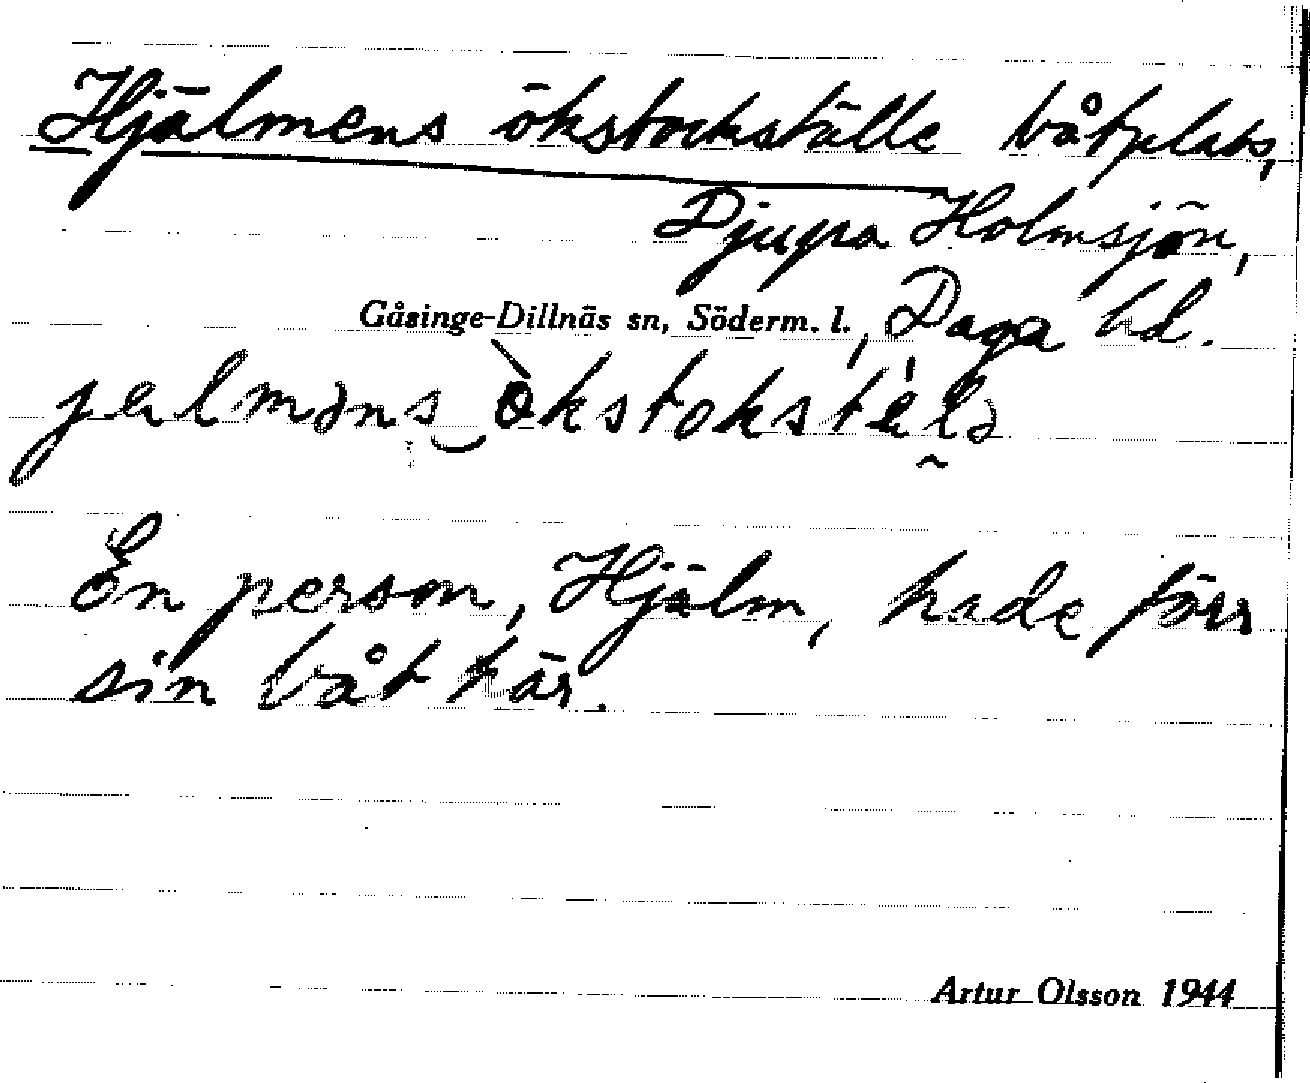 Hjälmens ökstockställe båtplats,
Djupa Holmsjön,
Gåsinge-Dillnäs sn, Söderm. l., Daga hd.
jalməns ò̀kstokstélə
En person, Hjälm, hade förr
sin båt här.
Artur Olsson 1944